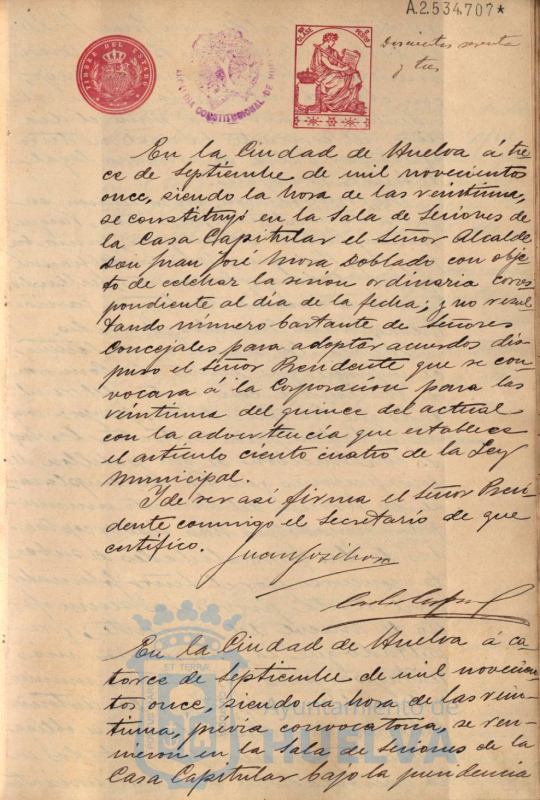 A.2.534.707*
TIMBRE DEL ESTADO
ALCALDIA CONSTITUCIONAL DE HUELVA
CLASE
PESOS
Doscientos
y tres
En la Ciudad de Huelva á tre
ce de Septiembre de mil novecientos
once, siendo la hora de las veintiuna,
se constituyó en la Sala de Sesiones de
la Casa Capitular el Señor Alcalde
Don Juan José Mora Doblado con obje
to de celebrar la sesión ordinaria corres
pondiente al día de la fecha; y no resul
tando número bastante de Señores
Concejales para adoptar acuerdos dis
puso el Señor Presidente que se con
vocara á la Corporación para las
veintiuna del quince del actual
con la advertencia que establece
el artículo ciento cuatro de la Ley
Municipal.
Y de ser así firma el Señor Presi
dente conmigo el Secretario de que
certifico.
Juan José Mora
En la Ciudad de Huelva á ca
torce de Septiembre de mil novecien
tos once, siendo la hora de las vein
tiuna, previa convocatoria, se reu
nieron en la Sala de Sesiones de la
Casa Capitular bajo la presidencia
ET TERRÆ
Ayuntamiento de
HUELVA